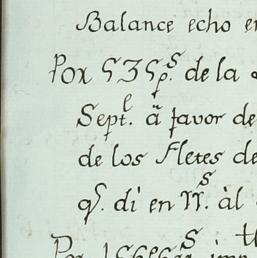 Balance echo en
Por 535 p.s de la
Sept.e â favor de
de los Fletes de
q.e di en rr.s àl
Por